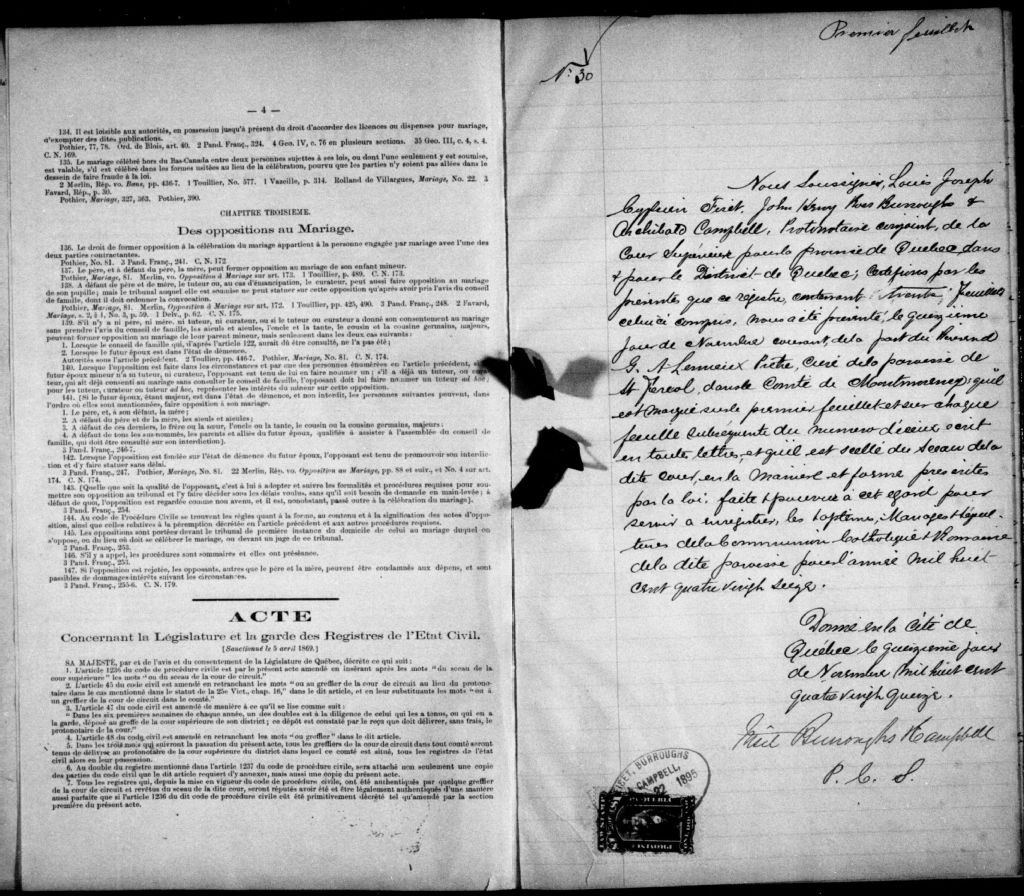 — 4 —
134. Il est loisible aux autorités, en possession jusqu'à présent du droit d'accorder des licences ou dispenses pour mariage,
d'exempter des dites publications.
Pothier, 77, 78. Ord. de Blois, art. 40. 2 Pand. Franç., 324. 4 Geo. IV, c. 76 en plusieurs sections. 35 Geo. III, c. 4, s. 4.
C. N. 169.
135. Le mariage célébré hors du Bas-Canada entre deux personnes sujettes à ses lois, ou dont l'une seulement y est soumise,
est valable, s'il est célébré dans les formes usitées au lieu de la célébration, pourvu que les parties n'y soient pas allées dans le
dessein de faire fraude à la loi.
2 Merlin, Rép. vo. Bans, pp. 436-7. 1 Toullier, No. 577. 1 Vazeille, p. 314. Rolland de Villargues, Mariage, No. 22. 3
Favard, Rép., p. 30.
Pothier, Mariage, 327, 363. Pothier, 390.
CHAPITRE TROISIEME.
Des oppositions au Mariage.
136. Le droit de former opposition à la célébration du mariage appartient à la personne engagée par mariage avec l'une des
deux parties contractantes.
Pothier, No. 81. 3 Pand. Franç., 241. C. N. 172
137. Le père, et à défaut du père, la mère, peut former opposition au mariage de son enfant mineur.
Pothier, Mariage, 81. Merlin, vo. Opposition à Mariage sur art. 173. 1 Toullier, p. 489. C. N. 173.
138. A défaut de père et de mère, le tuteur ou, au cas d'émancipation, le curateur, peut aussi faire opposition au mariage
de son pupille; mais le tribunal auquel elle est soumise ne peut statuer sur cette opposition qu'après avoir pris l'avis du conseil
de famille, dont il doit ordonner la convocation.
Pothier, Mariage, 81. Merlin, Opposition à Mariage sur art. 172. 1 Toullier, pp. 425, 490. 3 Pand. Franç., 248. 2 Favard,
Mariage, s. 2, § 1, No. 3, p. 59. 1 Delv., p. 62. C. N. 175.
139. S'il n'y a ni père, ni mère, ni tuteur, ni curateur, ou si le tuteur ou curateur a donné son consentement au mariage
sans prendre l'avis du conseil de famille, les aïeuls et aïeules, l'oncle et la tante, le cousin et la cousine germains, majeurs,
peuvent former opposition au mariage de leur parent mineur, mais seulement dans les deux cas suivants:
1. Lorsque le conseil de famille qui, d'après l'article 122, aurait dû être consulté, ne l'a pas été;
2. Lorsque le futur époux est dans l'état de démence.
Autorités sous l'article précédent. 2 Toullier, pp. 446-7. Pothier, Mariage, No. 81. C. N. 174.
140. Lorsque l'opposition est faite dans les circonstances et par une des personnes énumérées en l'article précédent, si le
futur époux mineur n'a ni tuteur, ni curateur, l'opposant est tenu de lui en faire nommer un; s'il a déjà un tuteur, ou cura-
teur, qui ait déjà consenti au mariage sans consulter le conseil de famille, l'opposant doit lui faire nommer un tuteur ad hoc;
pour les tuteur, curateur ou tuteur ad hoc, représenter les intérêts du mineur sur cette opposition.
141. [Si le futur époux, étant majeur, est dans l'état de démence, et non interdit, les personnes suivantes peuvent, dans
l'ordre où elles sont mentionnées, faire opposition à son mariage.
1. Le père, et, à son défaut, la mère;
2. A défaut du père et de la mère, les aïeuls et aïeules;
3. A défaut de ces derniers, le frère ou la sœur, l'oncle ou la tante, le cousin ou la cousine germains, majeurs:
4. A défaut de tous les sus-nommés, les parents et alliés du futur époux, qualifiés à assister à l'assemblée du conseil de fa-
mille, qui doit être consulté sur son interdiction).
3 Pand. Franç., 246-7.
142. Lorsque l'opposition est fondée sur l'état de démence du futur époux, l'opposant est tenu de promouvoir son interdic-
tion et d'y faire statuer sans délai.
3 Pand. Franç., 247. Pothier, Mariage, No. 81. 22 Merlin, Rép. vo. Opposition au Mariage, pp. 88 et suiv., et No. 4 sur art.
174. C. N. 174.
143. [Quelle que soit la qualité de l'opposant, c'est à lui à adopter et suivre les formalités et procédures requises pour sou-
mettre son opposition au tribunal et l'y faire décider sous les délais voulus, sans qu'il soit besoin de demande en main-levée; à
défaut de quoi, l'opposition est regardée comme non avenue, et il est, nonobstant, passé outre à la célébration du mariage].
3 Pand. Franç., 254.
144. Au code de Procédure Civile se trouvent les règles quant à la forme, au contenu et à la signification des actes d'oppo-
sition, ainsi que celles relatives à la péremption décrétée en l'article précédent et aux autres procédures requises.
145. Les oppositions sont portées devant le tribunal de première instance du domicile de celui au mariage duquel on
s'oppose, ou du lieu où doit se célébrer le mariage, ou devant un juge de ce tribunal.
3 Pand. Franç., 253.
146. S'il y a appel, les procédures sont sommaires et elles ont préséance.
3 Pand. Franç., 253.
147. Si l'opposition est rejetée, les opposants, autres que le père et la mère, peuvent être condamnés aux dépens, et sont
passibles de dommages-intérêts suivant les circonstances.
3 Pand. Franç., 255-6. C. N. 179.
ACTE
Concernant la Législature et la garde des Registres de l'Etat Civil.
[Sanctionné le 5 avril 1869.]
SA MAJESTÉ, par et de l'avis et du consentement de la Législature de Québec, décrète ce qui suit:
1. L'article 1236 du code de procédure civile est par le présent acte amendé en insérant après les mots "du sceau de la
cour supérieure" les mots "ou du sceau de la cour de circuit."
2. L'article 45 du code civil est amendé en retranchant les mots "ou au greffier de la cour de circuit au lieu du protono-
taire dans le cas mentionné dans le statut de la 25e Vict., chap. 16," dans le dit article, et en leur substituants les mots "ou à
un greffier de la cour de circuit dans le comté."
3. L'article 47 du code civil est amendé de manière à ce qu'il se lise comme suit:
"Dans les six premières semaines de chaque année, un des doubles est à la diligence de celui qui les a tenus, ou qui en a
la garde, déposé au greffe de la cour supérieure de son district; ce dépôt est constaté par le reçu que doit délivrer, sans frais, le
protonotaire de la cour."
4. L'article 48 du code civil est amendé en retranchant les mots "ou greffier" dans le dit article.
5. Dans les trois mois qui suivront la passation du présent acte, tous les greffiers de la cour de circuit dans tout comté seront
tenus de délivrer au protonotaire de la cour supérieure du district dans lequel ce comté est situé, tous les registres de l'état
civil alors en leur possession.
6. Au double du registre mentionné dans l'article 1237 du code de procédure civile, sera attaché non seulement une copie
des parties du code civil que le dit article requiert d'y annexer, mais aussi une copie du présent acte.
7. Tous les registres qui, depuis la mise en vigueur du code de procédure civile, ont été authentiqués par quelque greffier
de la cour de circuit et revêtus du sceau de la dite cour, seront réputés avoir été et être légalement authentiqués d'une manière
aussi parfaite que si l'article 1236 du dit code de procédure civile eût été primitivement décrété tel qu'amendé par la section
première du présent acte.
Premier feuillet
No. 30
Nous Soussignés, Louis Joseph
Cyprien Fiset, John Henry Ross Burroughs &
Archibald Campbell, Protonotaire conjoint, de la
Cour Supérieure pour la province de Québec dans
& pour le District de Québec; Certifions par les
présentes, que ce régistre, contenant trente feuillets
celui ci compris, nous a été présenté, le quinzième
jour de Novembre courant, de la part du Révérend
G. A. Lemieux Prêtre, Curé de la paroisse de
St Féréol, dans le Comté de Montmorency; qu'il
est marqué sur le premier feuillet et sur chaque
feuille subséquente du numéro d'iceux écrit
en toutes lettres, et qu'il est scellé du Sceau de la
dite cour, en la manière et forme prescrites
par la loi. faite & pourvue à cet égard pour
servir à enregistrer, les baptêmes, Mariages & Sépul-
tures de la Communion Catholique & Romaine
de la dite paroisse pour l'année Mil huit
cent quatre vingt seize.
Donné en la Cité de
Québec le quinzième jour
de Novembre Mil huit cent
quatre vingt quinze.
Fiset Burroughs & Campbell
P. C. S.
FISET, BURROUGHS
& CAMPBELL,
22 1895
LAW STAMP
QUEBEC
PROVINCE